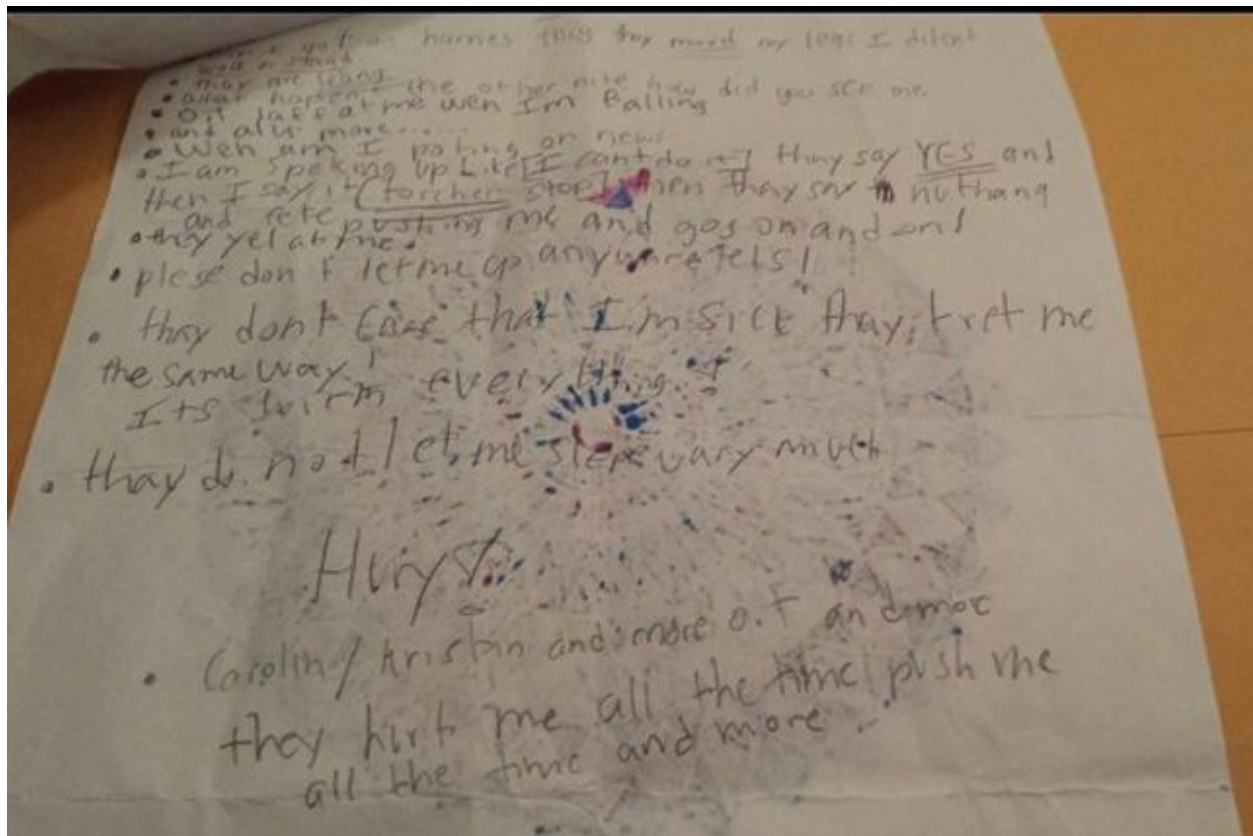 harnes they my legs I
stand
• they are
• what hapen the other nite how did you see me
• O.T laff at me wen I'm Balling
• and alit more......
• Wen am I on news
• I am speking up Like [I cant do it] thay say YES and
then I say it [torcher stop] then thay say nuthang
and pushing me and gos on and on!
• they yel at me.
• plese don't let me go
• thay dont care that I.m sick thay, tret me
the same way!
Its everything
• thay do not let me slepe vary much
Hury!
• Carolin/ kristin and more O.T and mor
they hurt me all the time push me
all the time and more..